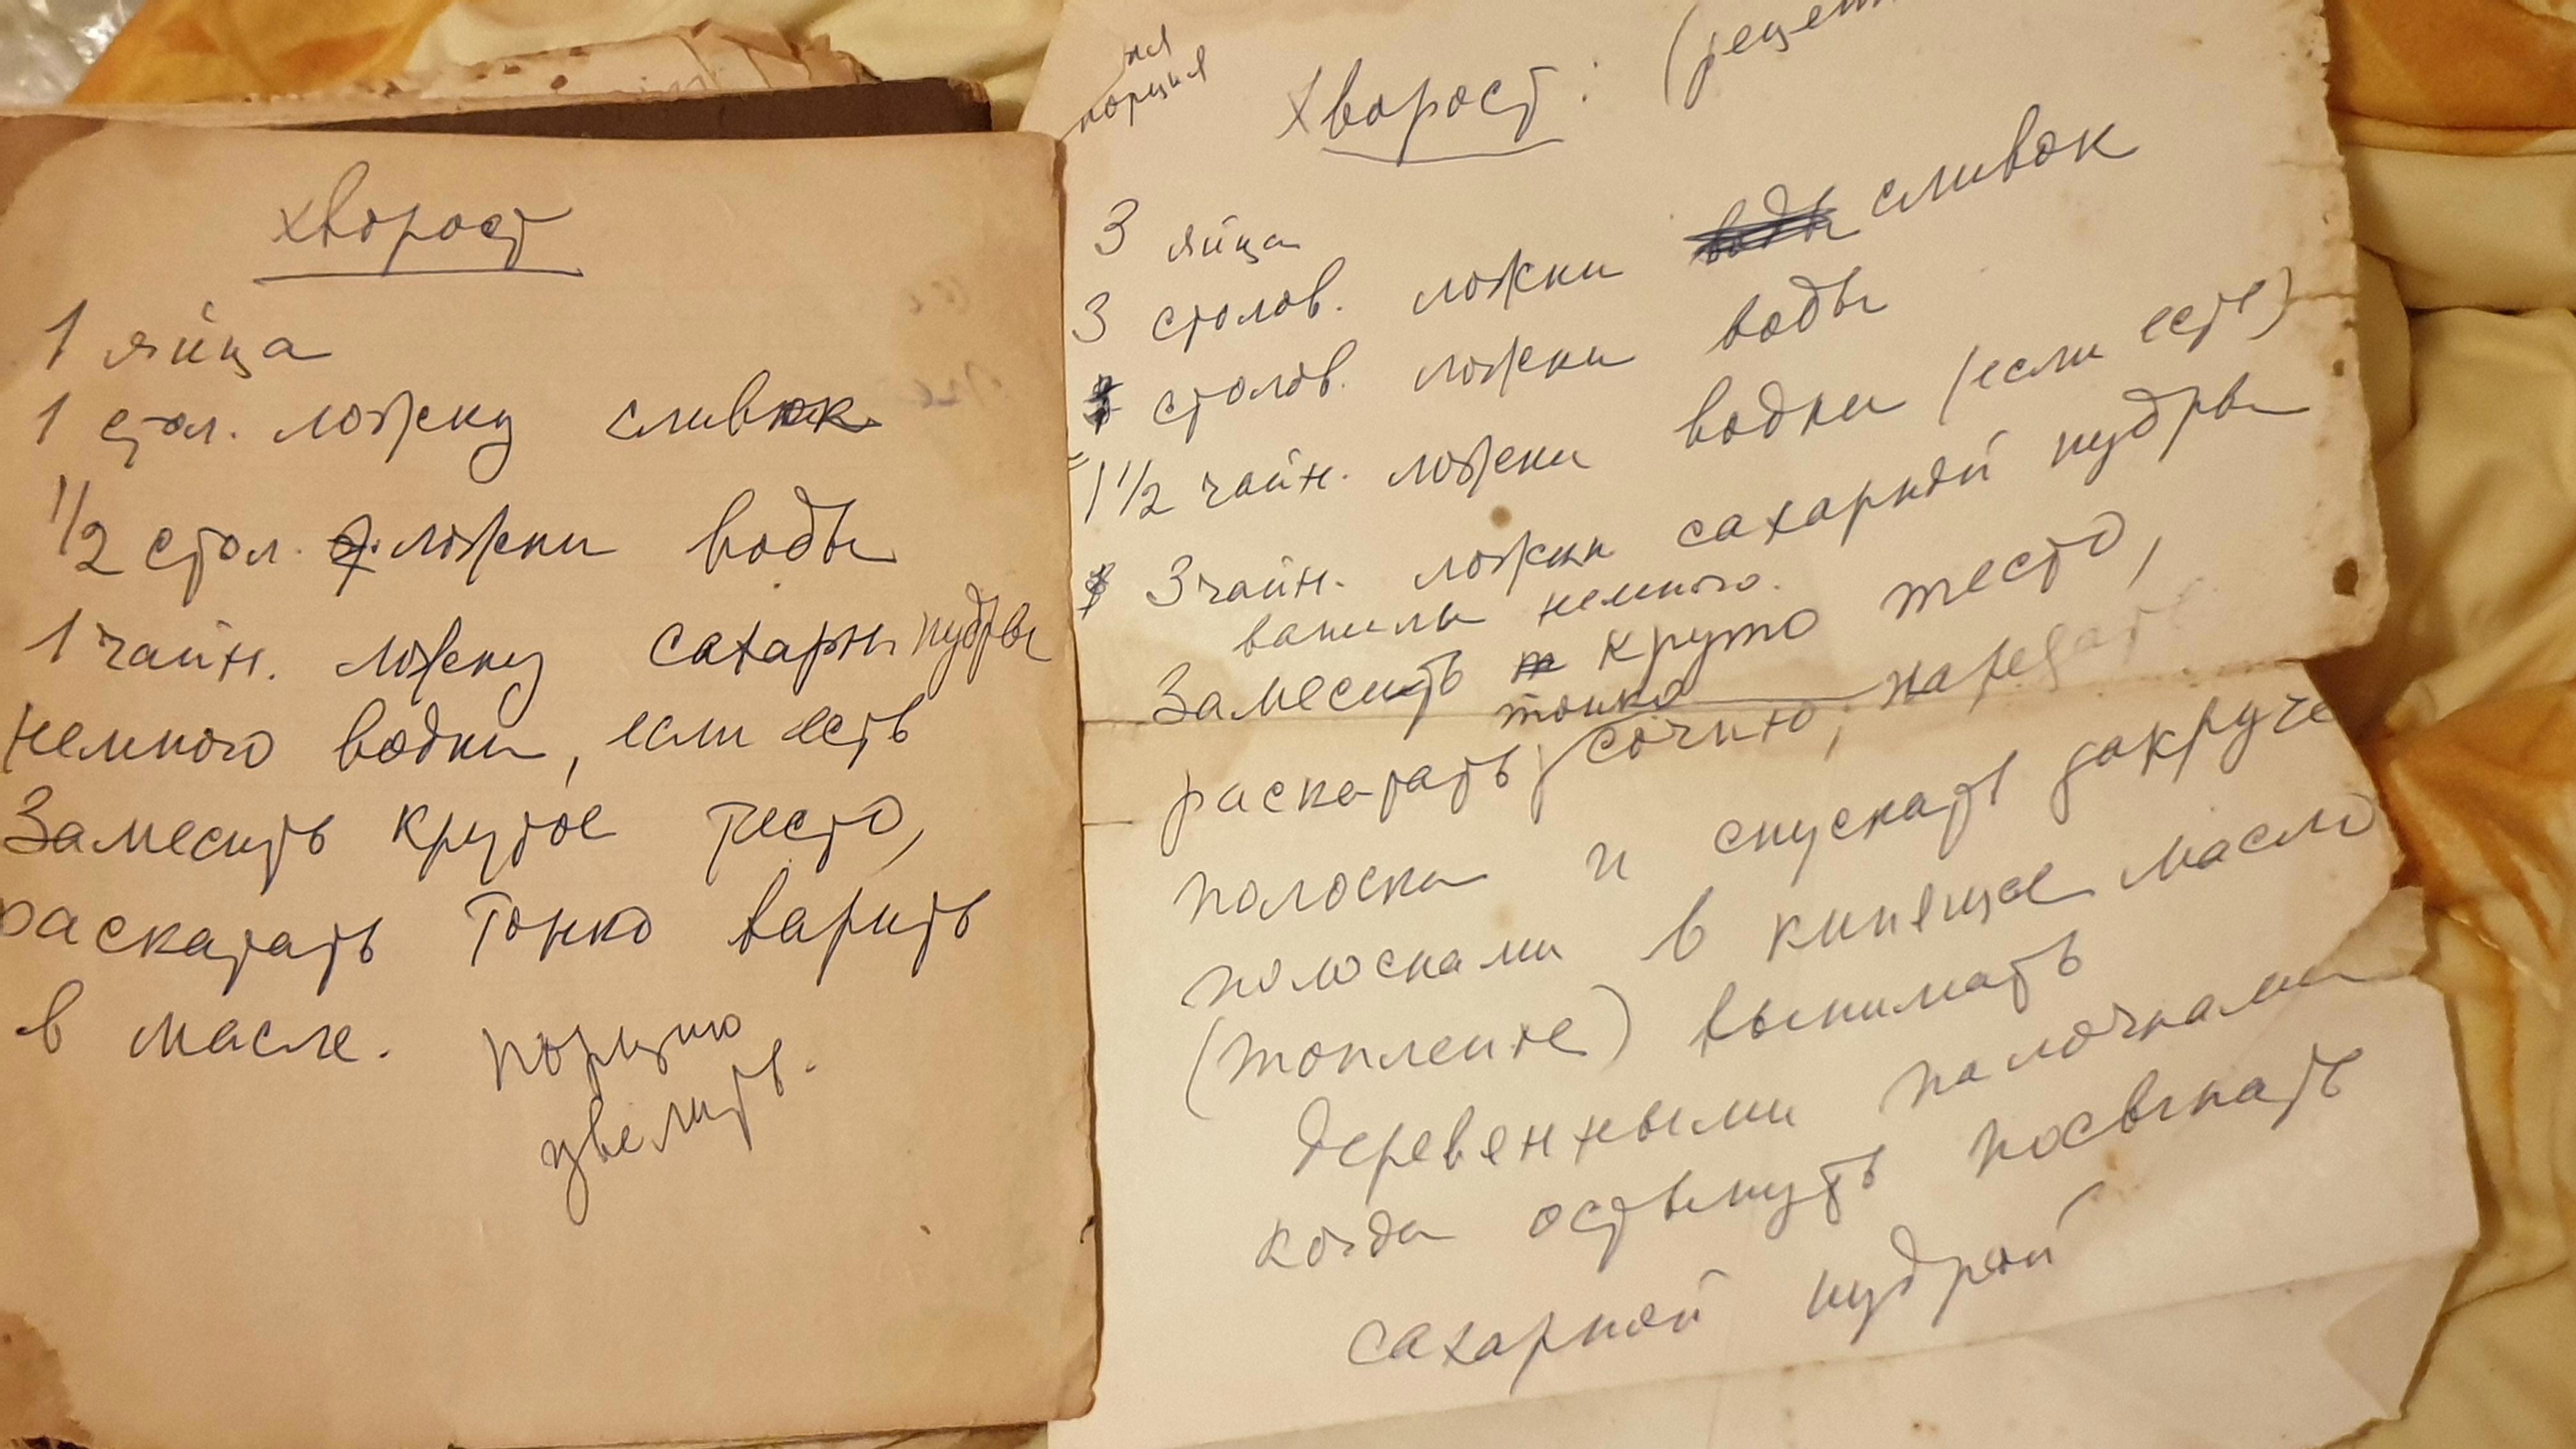 хворост
1 яйца
1 стол. ложку сливок
1/2 стол. ложки воды
1 чайн. ложку сахарн пудры
немного водки, если есть
Замесить крутое тесто,
раскатать тонко варить
в масле. порцию
увелить.
порция
Хворост: (рецепт
3 яйца
3 столов. ложки воды сливок
столов. ложки воды
1 1/2 чайн. ложки водки (если есть)
3 чайн. ложки сахарной пудры
ванили немного.
Замесить круто тесто,
тонко
раскатать сочню, нарезать
полоски и спускать закруче
полосками в кипящее масло
(топление) вынимать
деревенными палочками
когда остынуть посыпать
сахарной пудрой